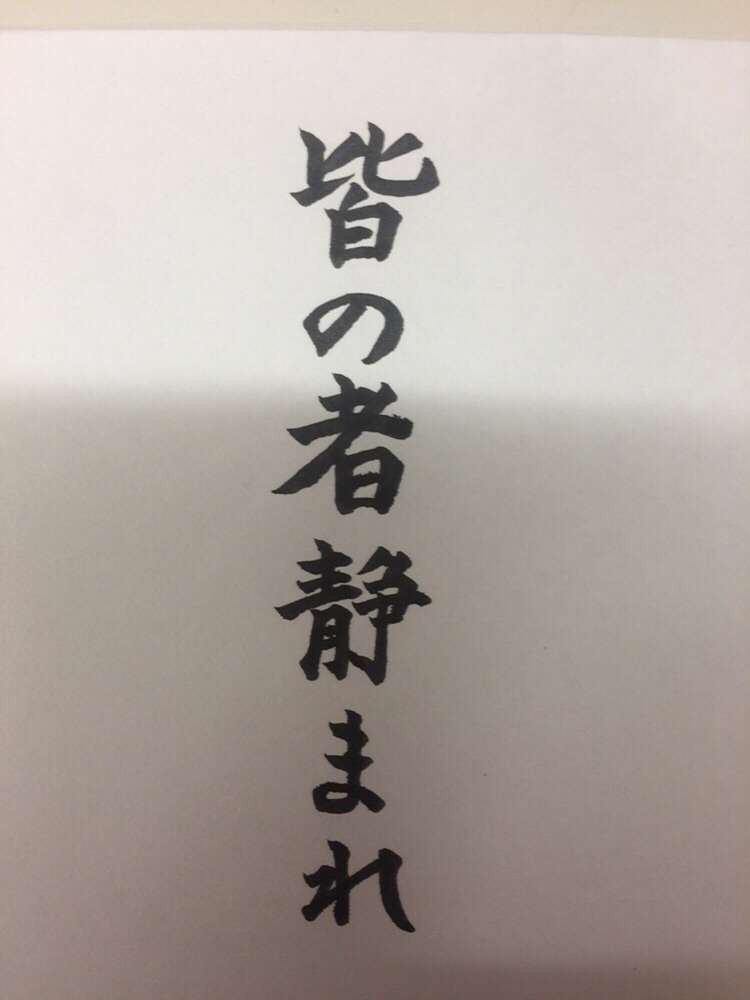 皆の者静まれ